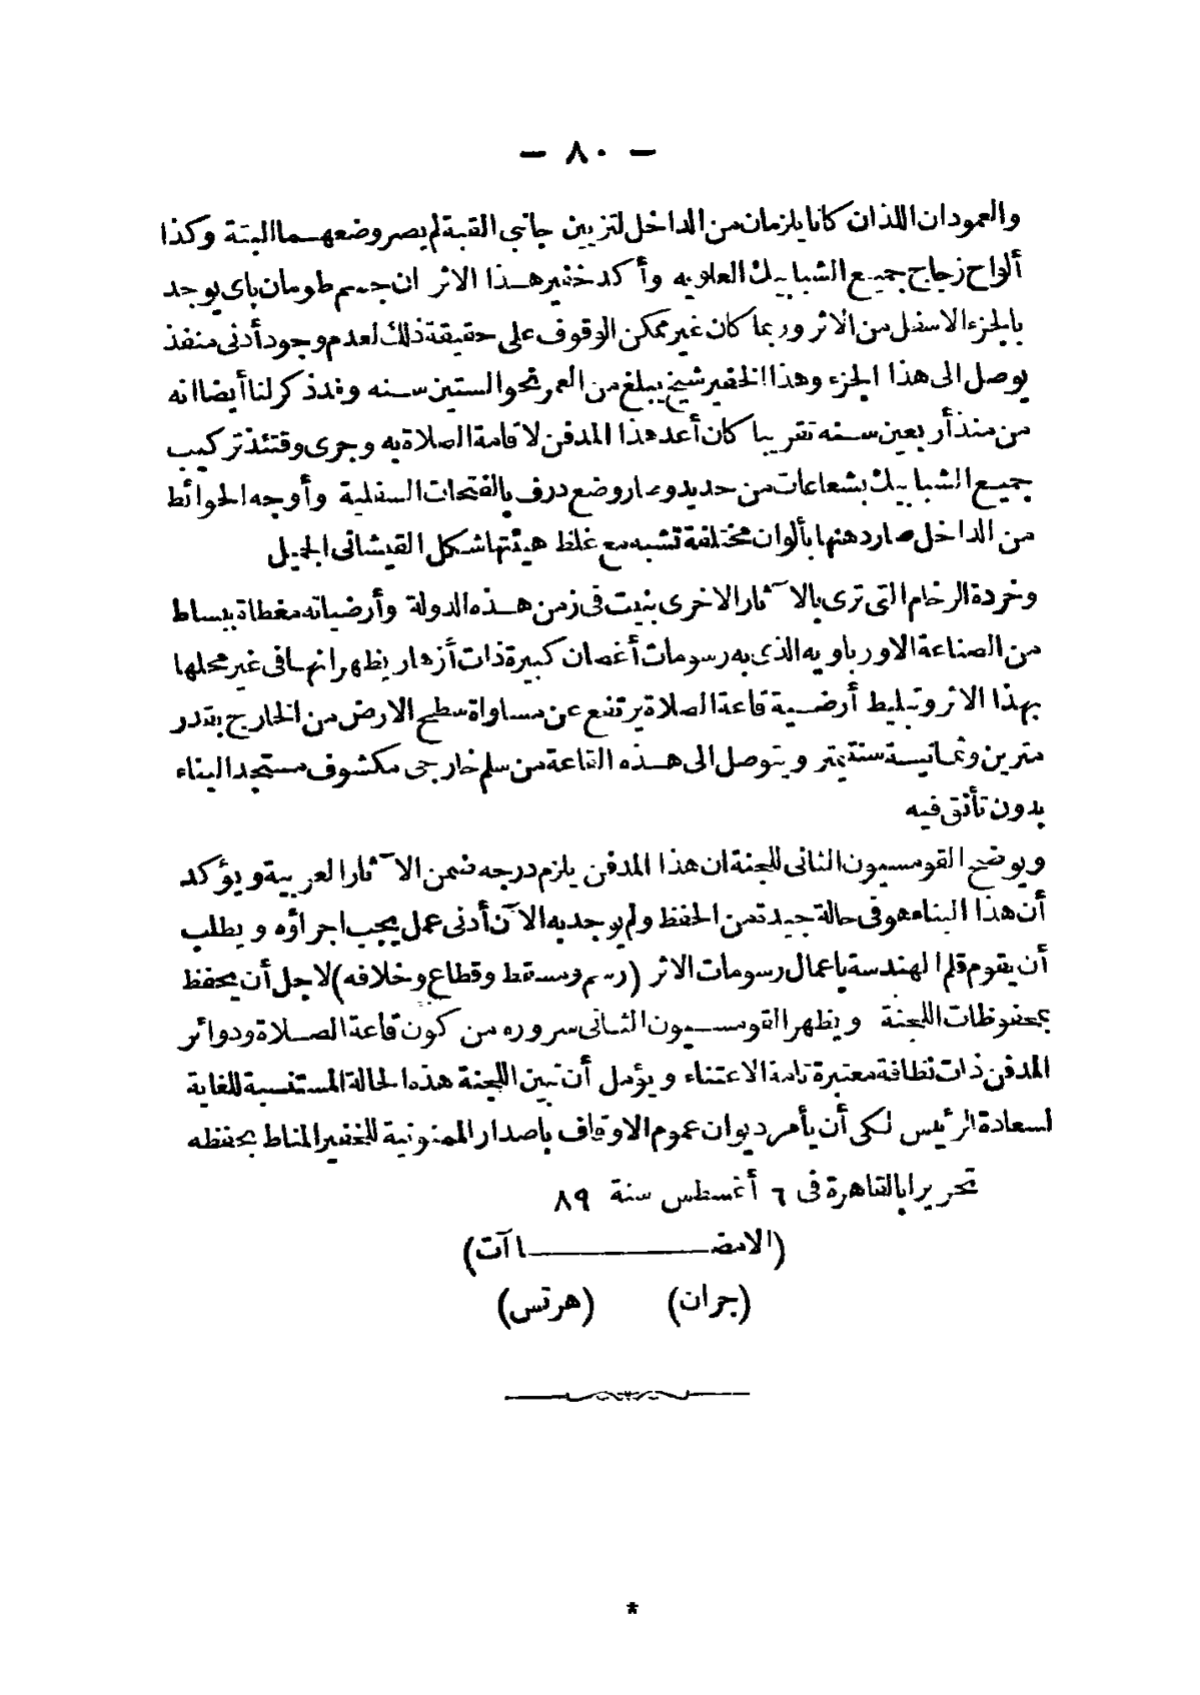 — ٨٠ —
والعمودان اللذان كانا يلزمان من الداخل لتزيين جانبى القبة لم يصر وضعهما البتة وكذا
ألواح زجاج جميع الشبابيك العلويه وأكد خفير هذا الاثر ان جسم طومان باى يوجد
بالجزء الاسفل من الاثر وربما كان غير ممكن الوقوف على حقيقة ذلك لعدم وجود أدنى منفذ
يوصل الى هذا الجزء وهذا الخفير شيخ يبلغ من العمر نحو الستين سنه وقد ذكر لنا أيضا انه
من منذ أربعين سنه تقريبا كان أعد هذا المدفن لاقامة الصلاة به وجرى وقتئذ تركيب
جميع الشبابيك بشعاعات من حديد وصار وضع درف بالفتحات السفلية وأوجه الحوائط
من الداخل صار دهنها بألوان مختلفة تشبه مع غلظ هيئتها شكل القيشانى الجميل
وخردة الرخام التى ترى بالآثار الاخرى بنيت فى زمن هذه الدولة وأرضياته مغطاة ببساط
من الصناعة الاورباويه الذى به رسومات أغصان كبيرة ذات أزهار يظهر انها فى غير محلها
بهذا الاثر وتبليط أرضية قاعة الصلاة يرتفع عن مساواة سطح الارض من الخارج بقدر
مترين وثمانية سنتيمتر ويتوصل الى هذه القاعة من سلم خارجى مكشوف مستجد البناء
بدون تأنق فيه
ويوضح القومسيون الثانى للجنة ان هذا المدفن يلزم درجه ضمن الآثار العربية ويؤكد
أن هذا البناء هو فى حالة جيدة من الحفظ ولم يوجد به الآن أدنى عمل يجب اجراؤه ويطلب
أن يقوم قلم الهندسة باعمال رسومات الاثر (رسم ومسقط وقطاع وخلافه) لاجل أن يحفظ
بمحفوظات اللجنة ويظهر القومسيون الثانى سروره من كون قاعة الصلاة ودوائر
المدفن ذات نظافة معتبرة تامة الاعتناء ويؤمل أن تبين اللجنة هذه الحالة المستنسبة للغاية
لسعادة الرئيس لكى أن يأمر ديوان عموم الاوقاف باصدار الممنونية للخفير المناط بحفظه
تحريرا بالقاهرة فى ٦ أغسطس سنة ٨٩
(الامضاآت)
(جران) (هرتس)
*